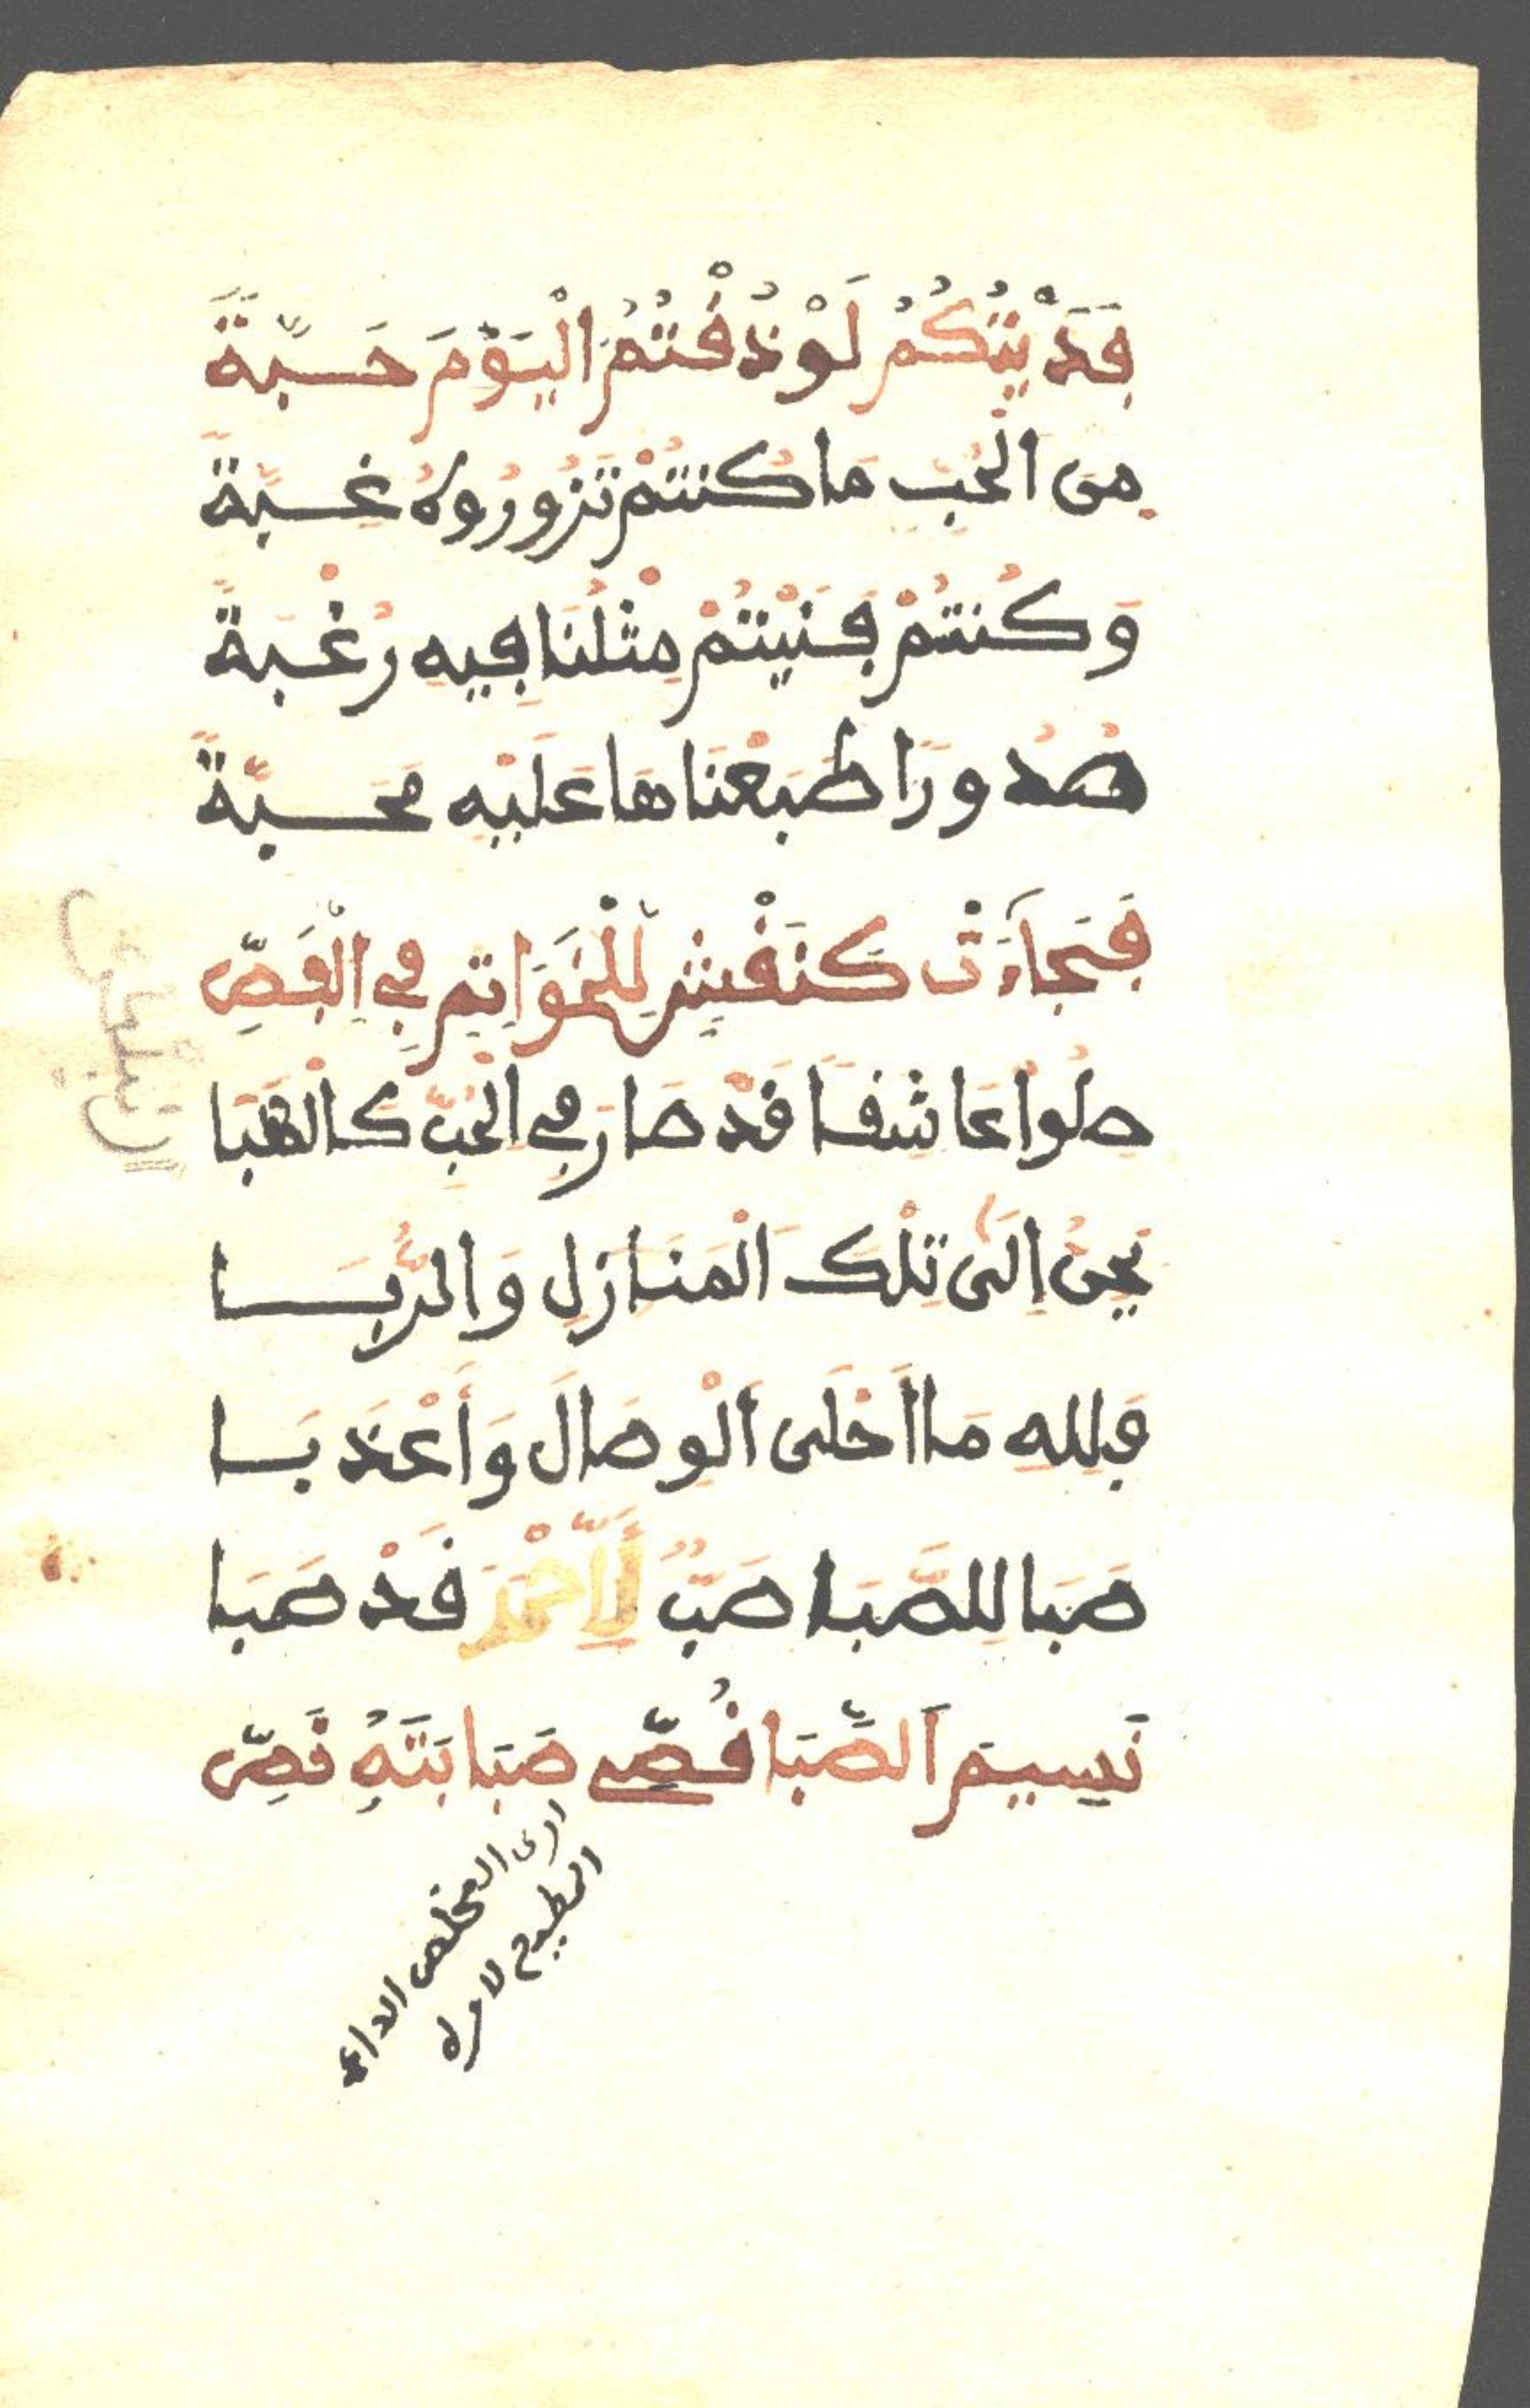 فَدَيْتُكُمُ لَوْ ذُقْتُمُ الْيَوْمَ حَبَّةً
مِنَ الْحُبِّ مَا كُنْتُمْ تَزُورُوهُ غِبَّةً
وَكُنْتُمْ فَنَيْتُمْ مِثْلُنَا فِيهِ رُغْبَةً
صُدُورًا طَبَعْنَاهَا عَلَيْهِ مَحَبَّةً
فَجَاءَتْ كَنَقْشٍ لِلْخَوَاتِمِ فِي الْفَصِّ
صِلُوا عَاشِقًا قَدْ صَارَ فِي الْحُبِّ كَالْهَبَا
يَحِنُّ إِلَى تِلْكَ الْمَنَازِلِ وَالرُّبَا
فَلِلَّهِ مَا أَحْلَى الْوِصَالَ وَأَعْذَبَا
صَبَا لِلصَّبَا صَبٌّ لِأَحْمَدَ قَدْ صَبَا
نَسِيمَ الصَّبَا قُصِّي صَبَابَتَهُ قَصِّ
ارى المخلص الداع